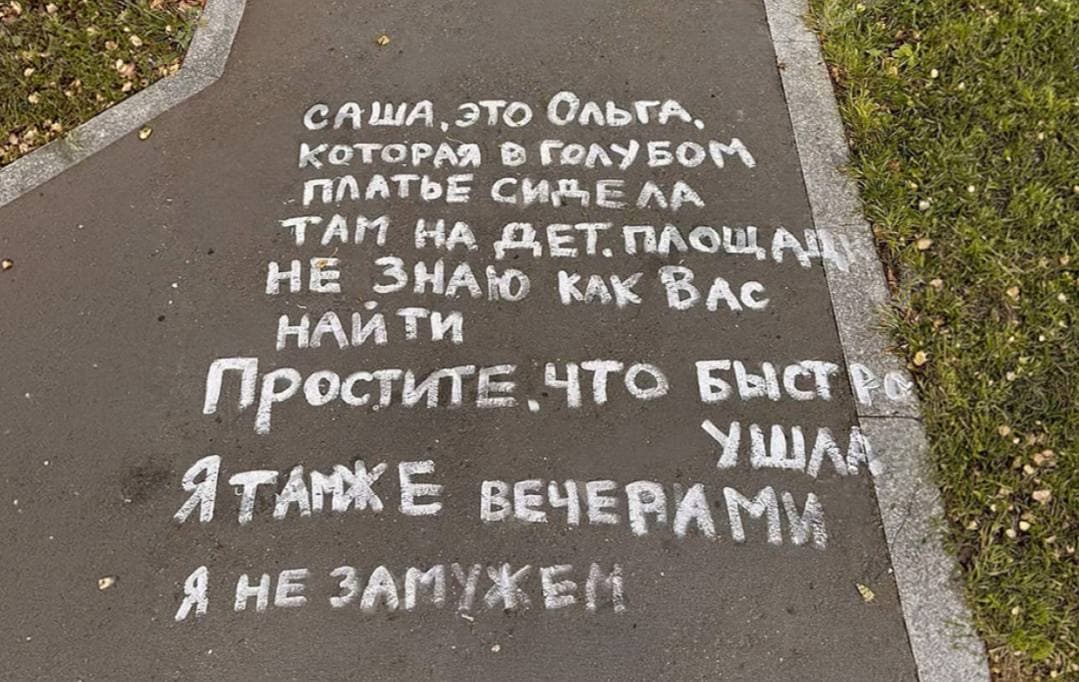 САША, ЭТО ОЛЬГА,
КОТОРАЯ В ГОЛУБОМ
ПЛАТЬЕ СИДЕЛА
ТАМ НА ДЕТ. ПЛОЩАДКЕ
НЕ ЗНАЮ КАК ВАС
НАЙТИ
ПРОСТИТЕ, ЧТО БЫСТРО
УШЛА
Я ТАМЖЕ ВЕЧЕРАМИ
Я НЕ ЗАМУЖЕМ